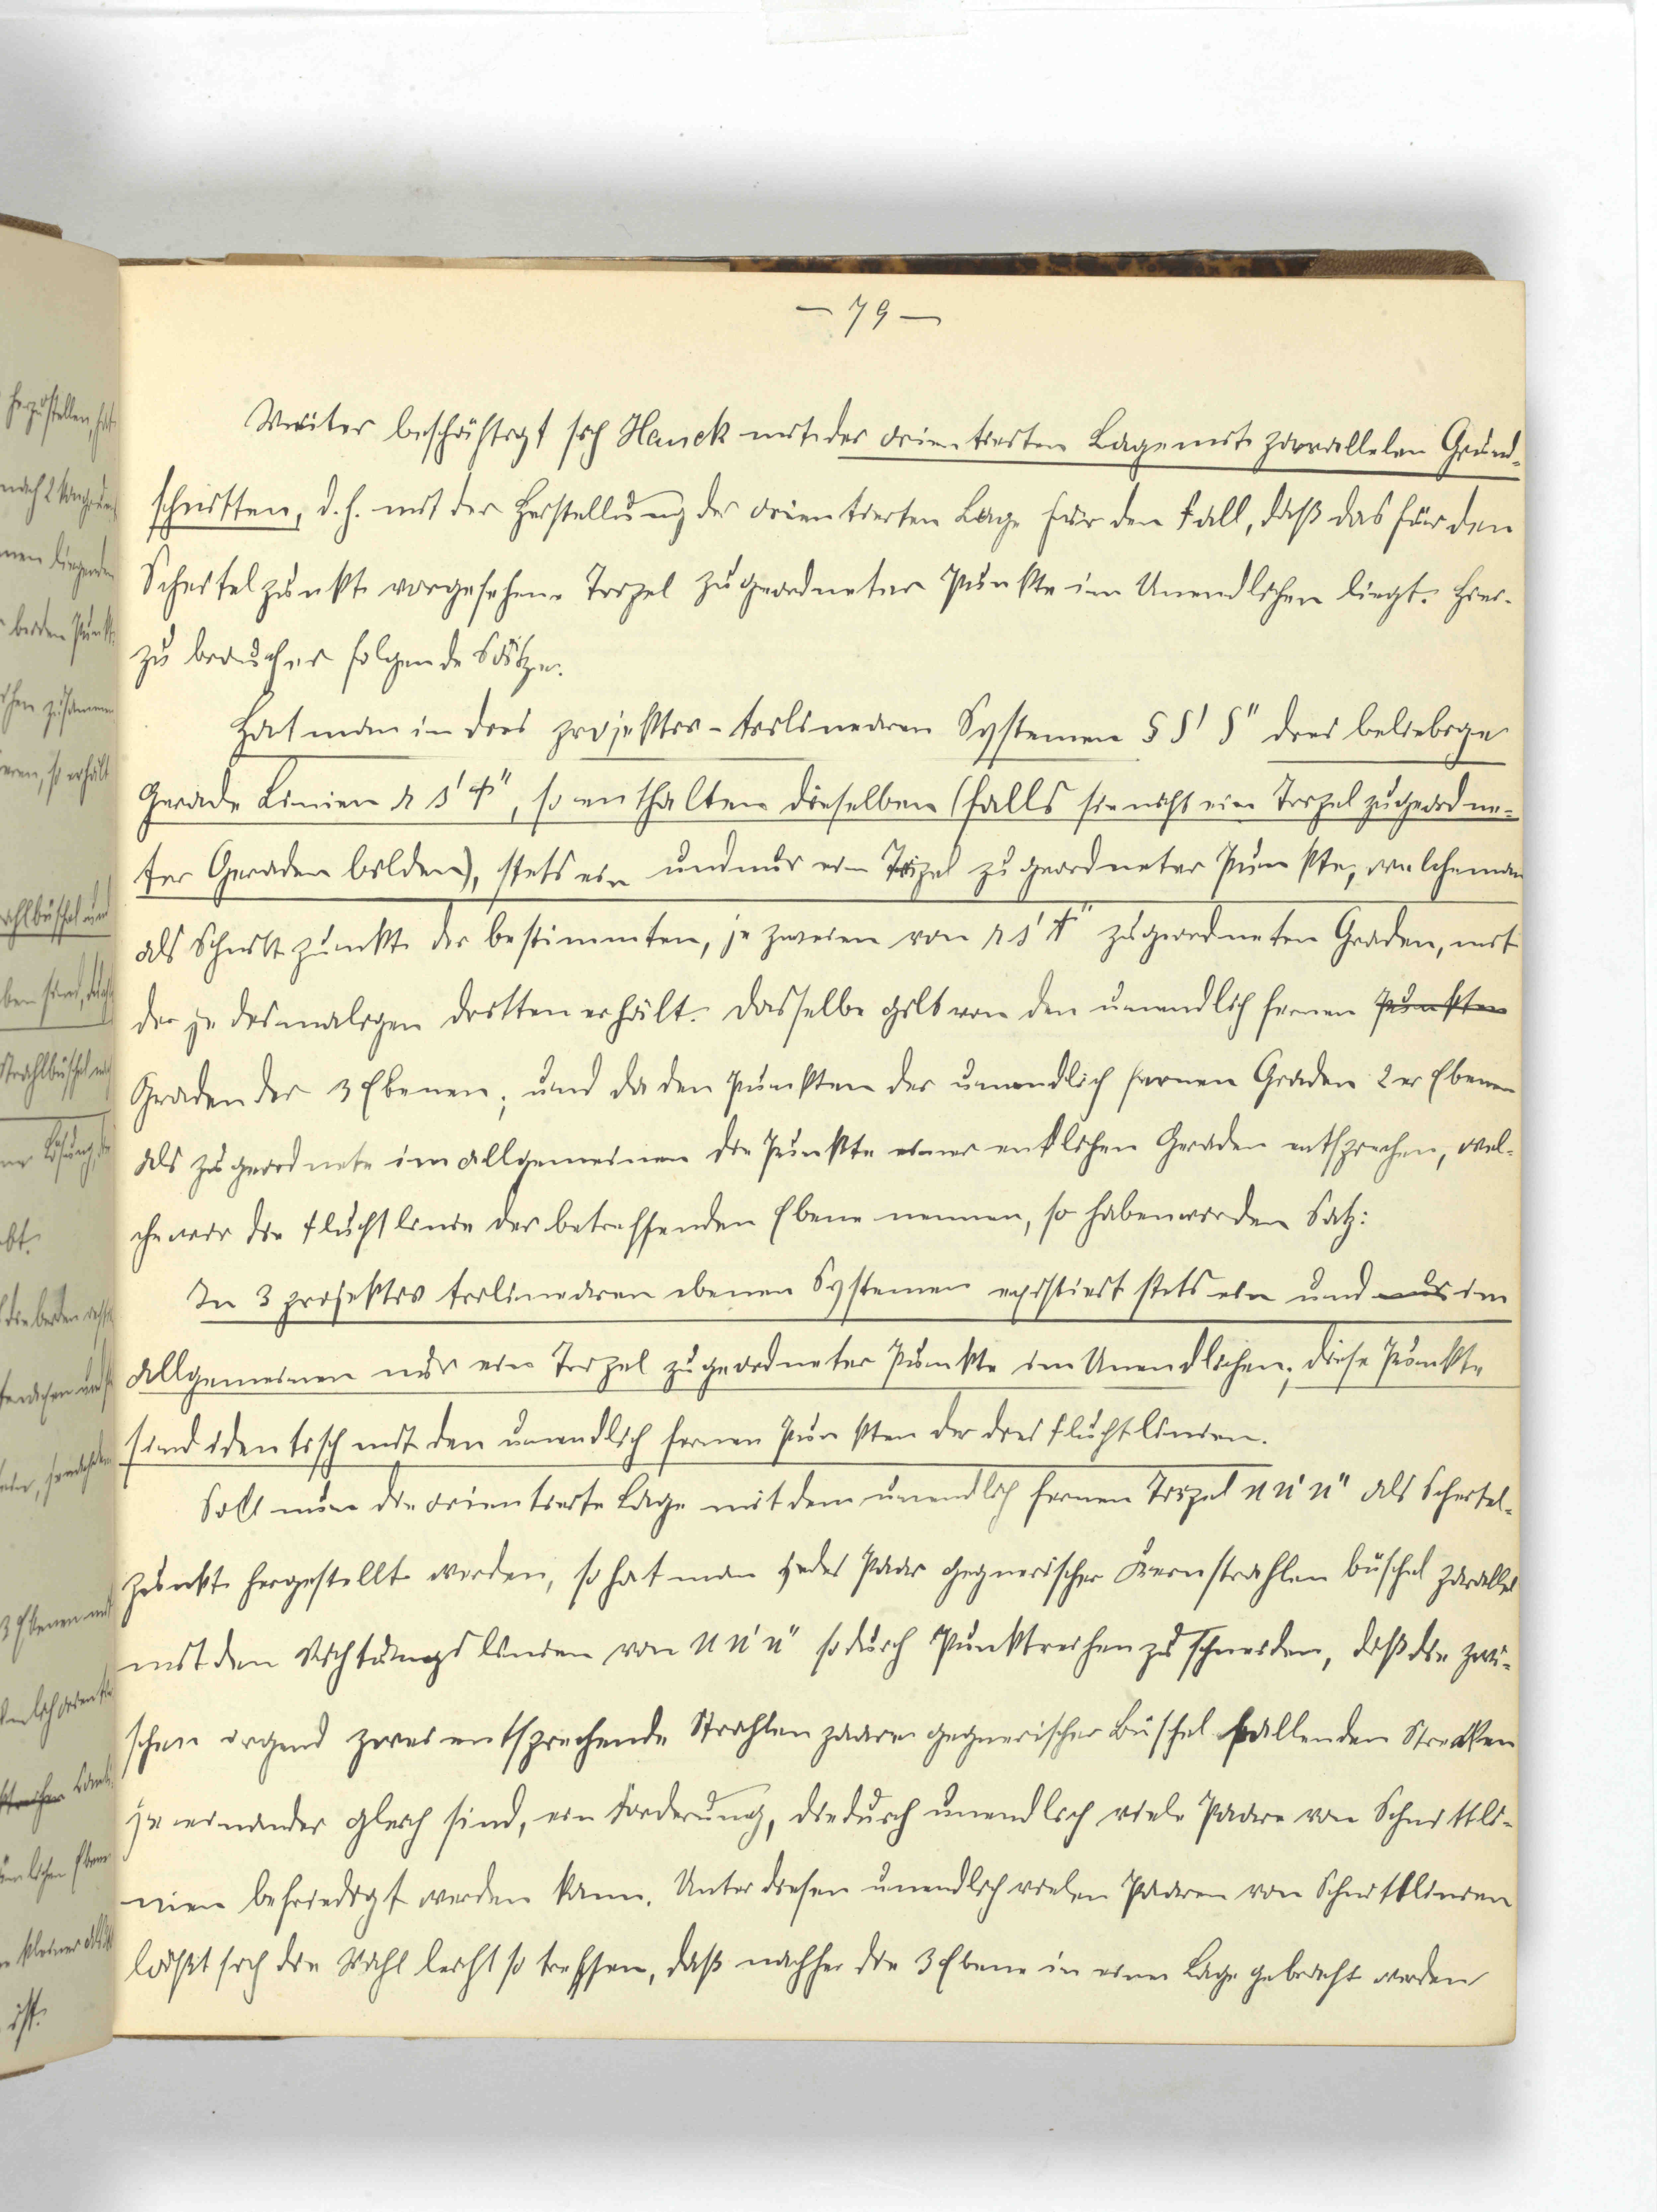 — 79 —
Weiter beschäftigt sich Hauck mit der orientierten Lage mit parallelen Grund-
schnitten, d. h. mit der Herstellung der orientierten Lage für den Fall, daß das für den
Scheitelpunkt vorgesehene Tripel zugeordneter Punkte im Unendlichen liegt. Hier-
zu braucht er folgende Sätze.
Hat man in drei projektiv-trilinearen Systemen S S' S'' drei beliebige
Gerade Linien r s' t'', so enthalten dieselben (falls sie nicht ein Tripel zugeordne-
ter Geraden bilden), stets ein und nur ein Tripel zugeordneter Punkte, welche man
als Schnittpunkte der bestimmten, je zweien von r s' t'' zugeordneten Graden, mit
der jedesmaligen dritten erhält. Dasselbe gilt von den unendlich fernen Punkten
Graden der 3 Ebenen; und da den Punkten der unendlich fernen Graden 2er Ebenen
als zugeordnete im allgemeinen die Punkte einer entlichen Geraden entsprechen, wel-
che wir die Fluchtlinie der betreffenden Ebene nennen, so haben wir den Satz:
In 3 projektiv trilinearen ebenen Systemen existiert stets ein und nur im
allgemeinen nur ein Tripel zugeordneter Punkte im Unendlichen; diese Punkte
sind identisch mit den unendlich fernen Punkten der drei Fluchtlinien.
Soll nun die orientierte Lage mit dem unendlich fernen Tripel u u' u'' als Scheitel-
punkt hergestellt werden, so hat man jedes Paar gegnerischer Kernstrahlenbüschel parallel
mit den Richtungslinien von u u' u'' so durch Punktreihen zu schneiden, daß die zwi-
schen irgend zwei entsprechende Strahlenpaare gegnerischer Büschel fallenden Strecken
je einander gleich sind, ein Forderung, die durch unendlich viele Paare von Schnittli-
nien befriedigt werden kann. Unter diesen unendlich vielen Paaren von Schnittlinien
läßt sich die Wahl leicht so treffen, daß nachher die 3 Ebene in einer Lage gebracht werden